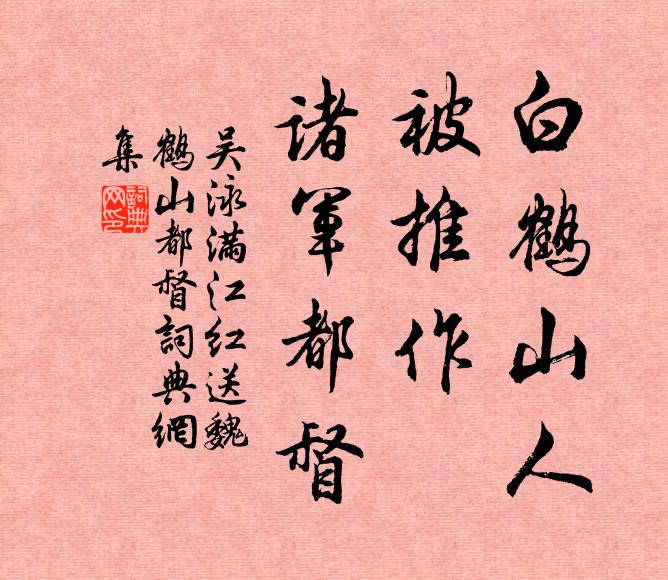 白鹤山人
被推作
诸军都督
吴泳满江红送魏
鹤山都督詞典網
集
詞典
网印